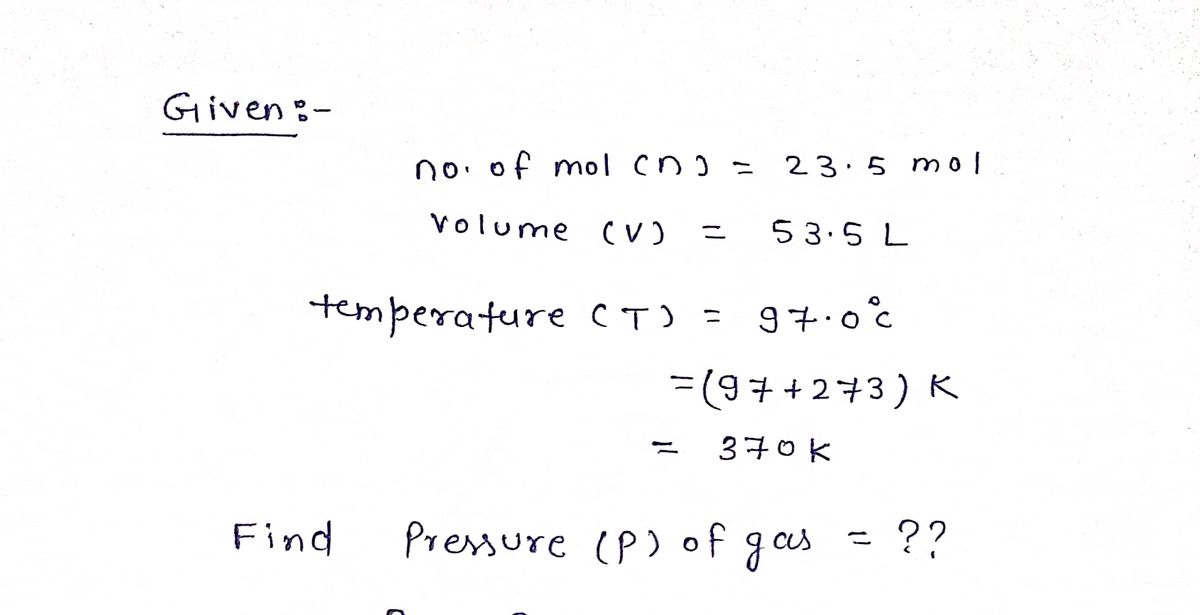 Given :-
no. of mol (n) = 23.5 mol
volume (V) = 53.5 L
temperature (T) = 97.0°c
=(97+273) K
= 370K
Find Pressure (P) of gas = ??